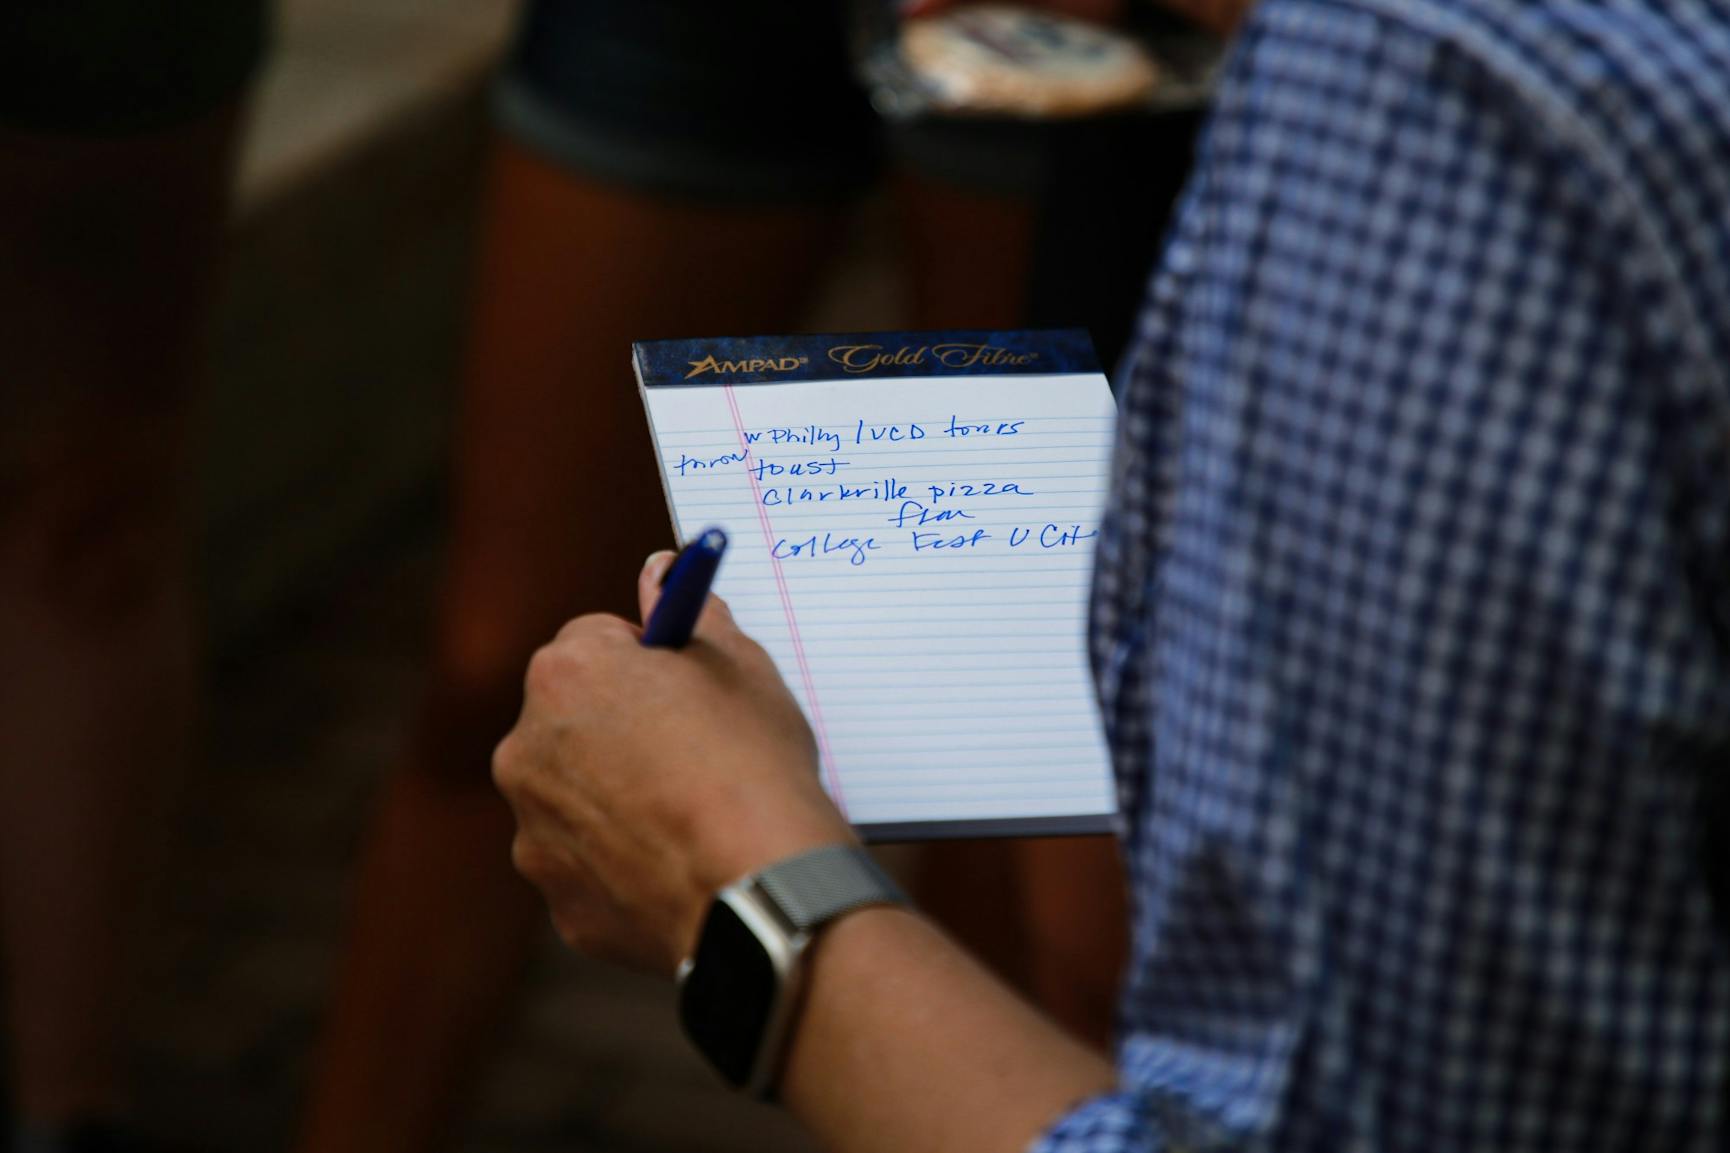 AMPAD® Gold Fibre®
W Philly / UCD tours
throw toast
Clarkville pizza
from
College Fest U Cit